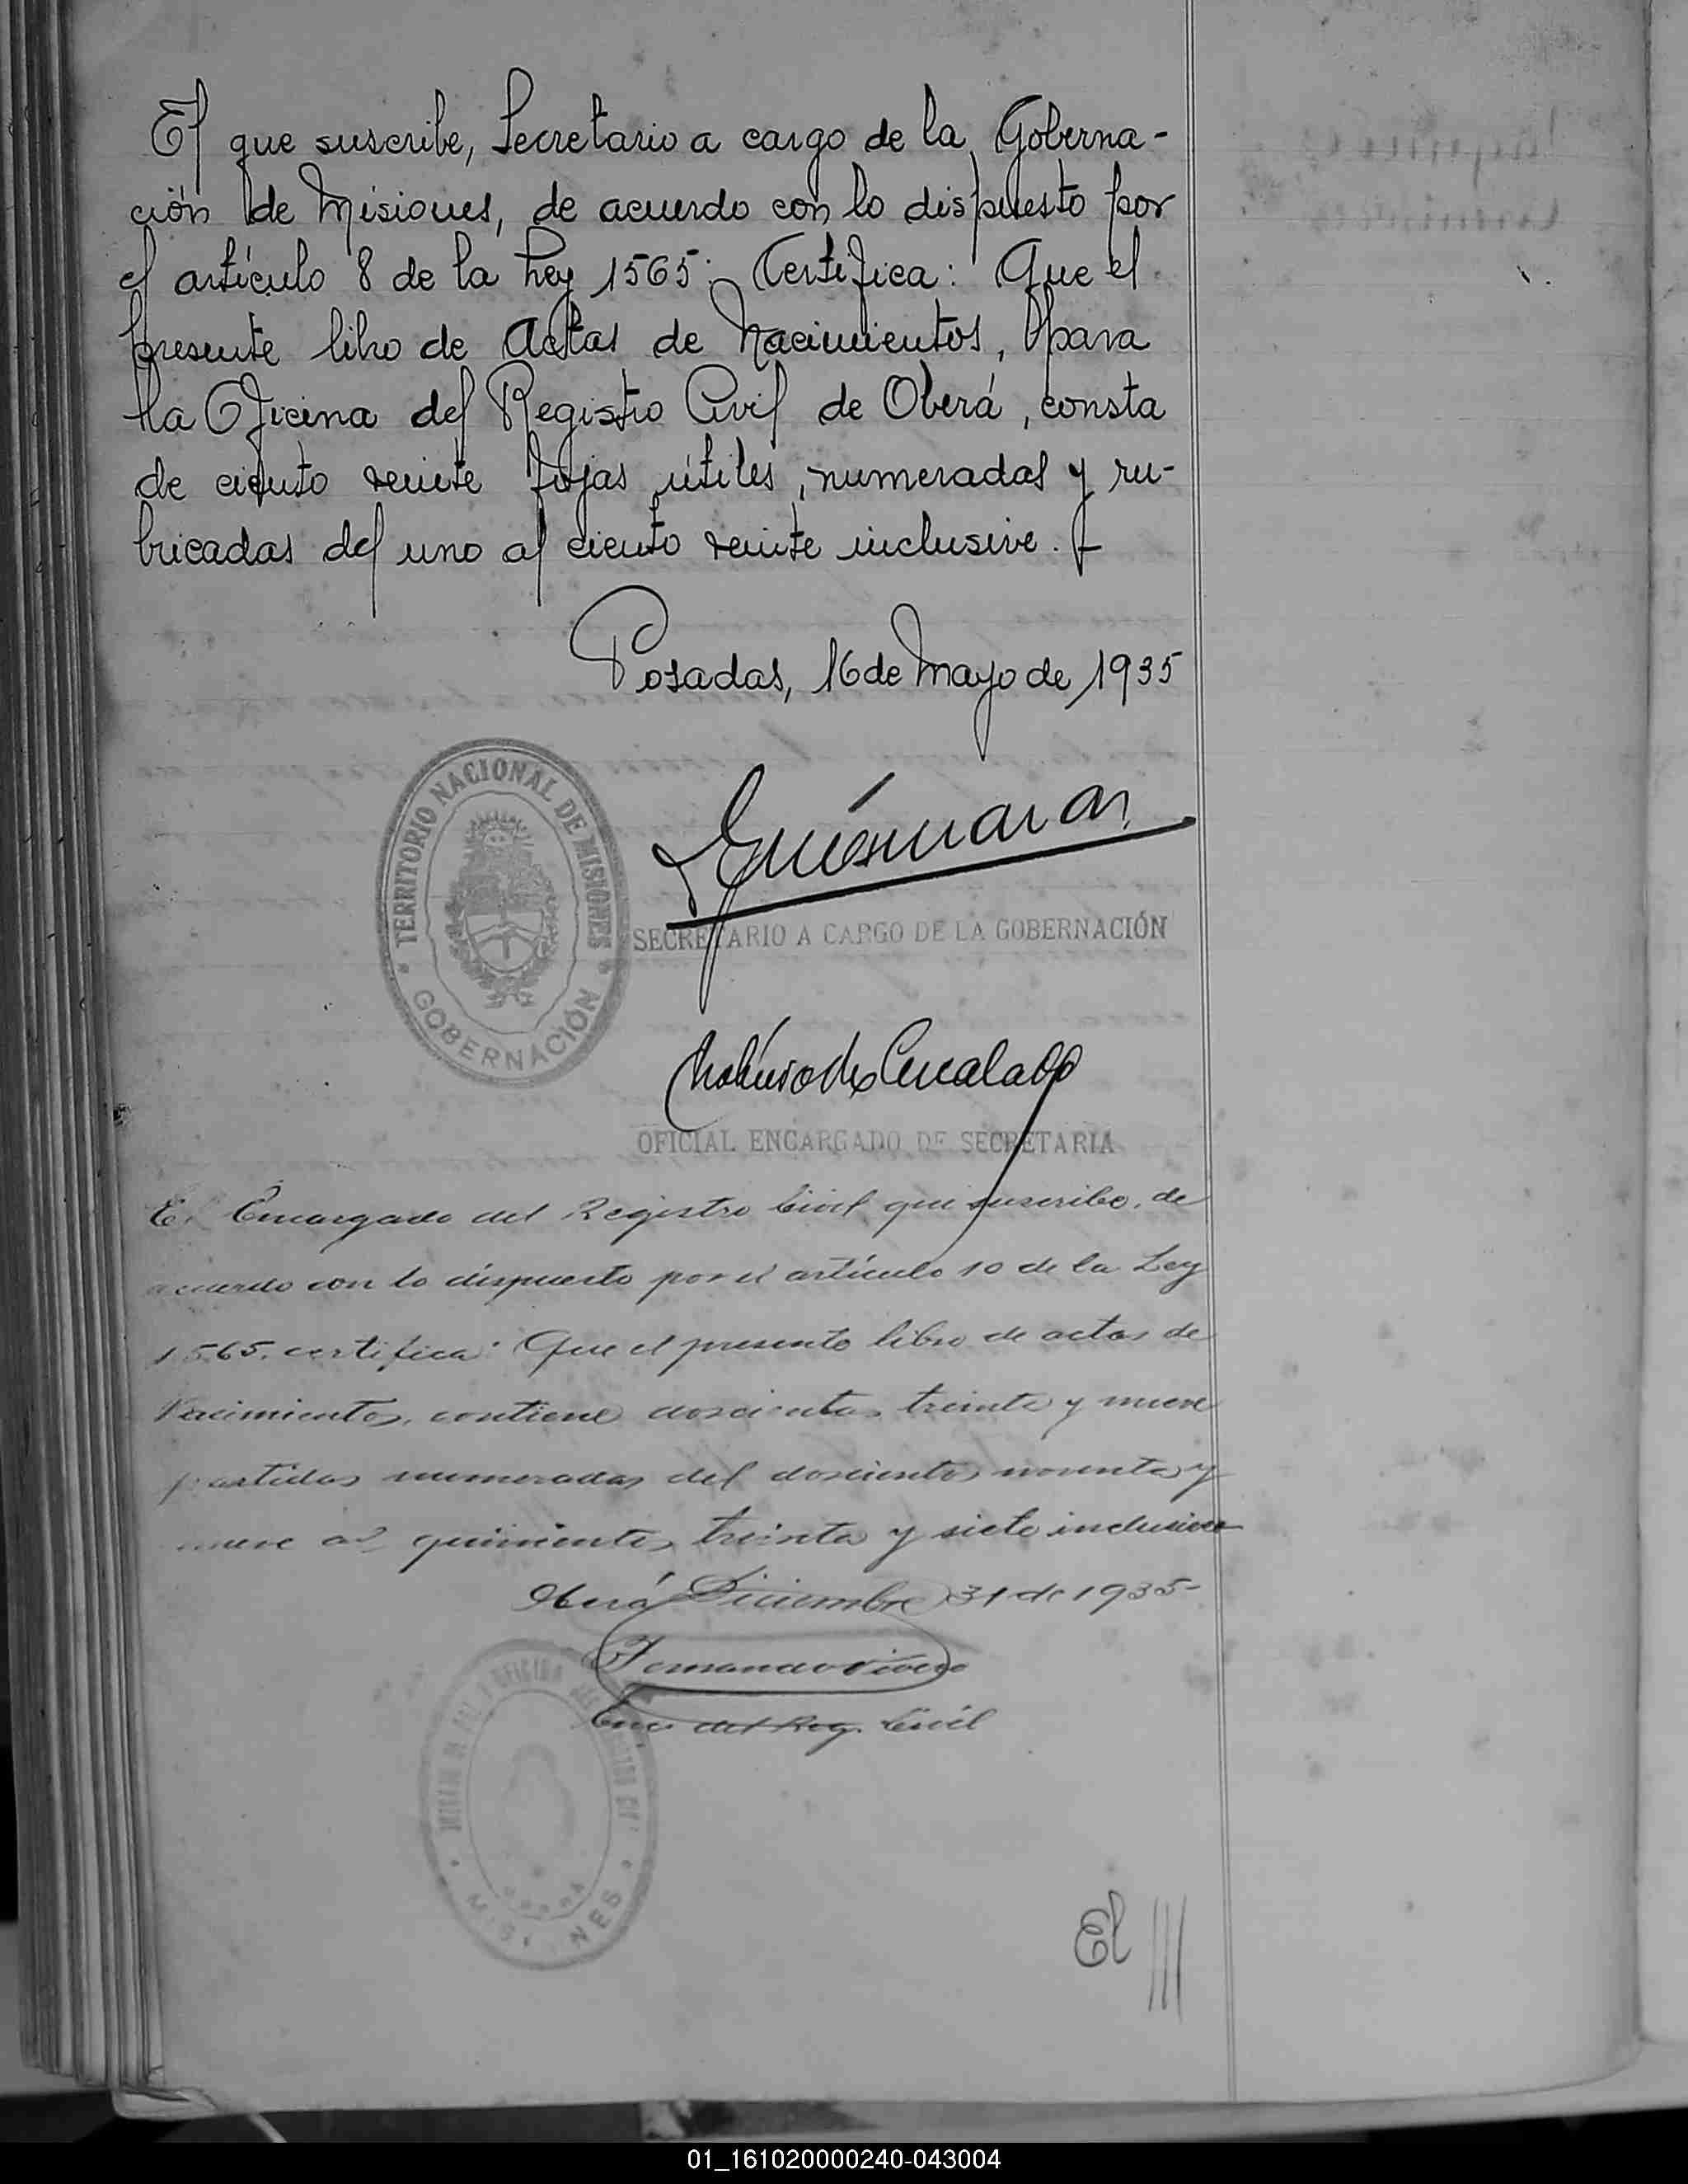 El que suscribe, Secretario a cargo de la Goberna-
ción de Misiones, de acuerdo con lo dispuesto por
el artículo 8 de la Ley 1565: Certifica: Que el
presente libro de Actas de Nacimientos, para
la Oficina del Registro Civil de Oberá, consta
de ciento veinte fojas útiles, numeradas y ru-
bricadas del uno al ciento veinte inclusive.
Posadas, 16 de Mayo de 1935
TERRITORIO NACIONAL DE MISIONES
GOBERNACIÓN
SECRETARIO A CARGO DE LA GOBERNACIÓN
OFICIAL ENCARGADO DE SECRETARIA
El Encargado del Registro Civil que suscribe, de
acuerdo con lo dispuesto por el artículo 10 de la Ley
1565, certifica: Que el presente libro de actas de
Nacimientos, contiene doscientas treinta y nueve
partidas numeradas del doscientos noventa y
nueve al quinientos treinta y siete inclusive
Oberá Diciembre 31 de 1935-
Fernando
Enc. del Reg. Civil
OFICINA
El
01_161020000240-043004